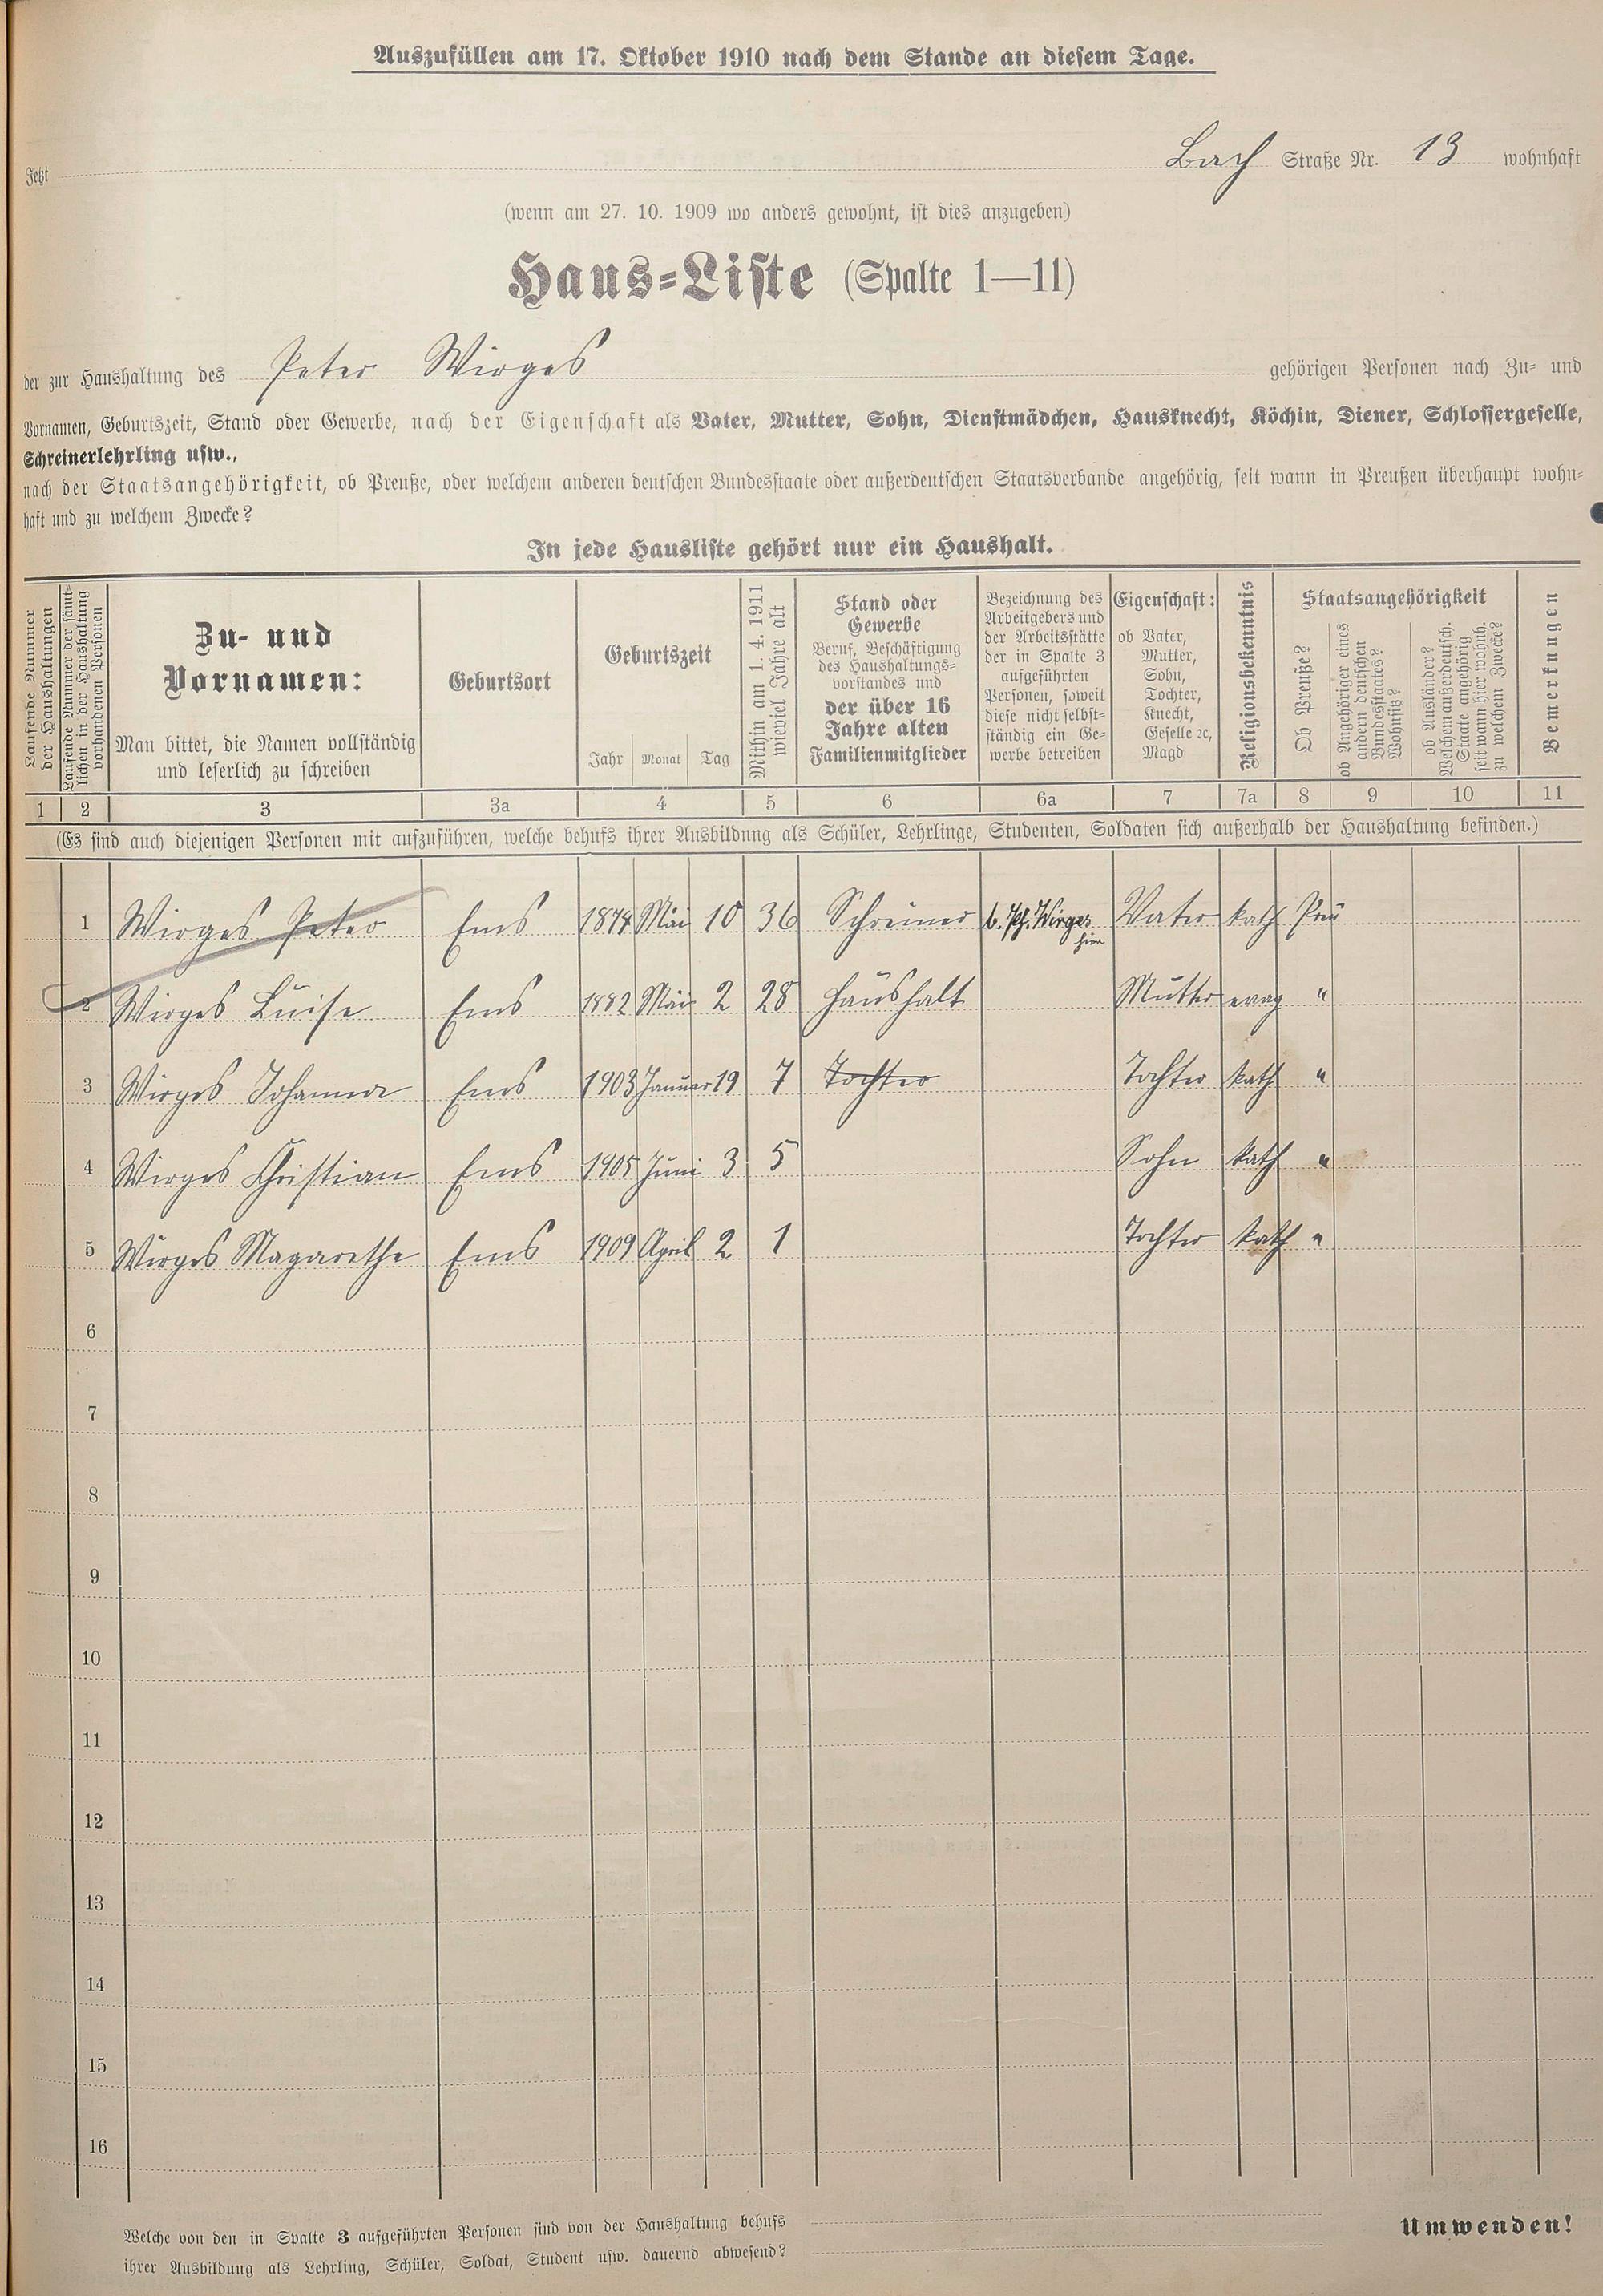 Auszufüllen am 17. Oktober 1910 nach dem Stande an diesem Tage.
Jetzt Bach Straße Nr. 13 wohnhaft
(wenn am 27. 10. 1909 wo anders gewohnt, ist dies anzugeben)
Haus-Liste (Spalte 1—11)
der zur Haushaltung des Peter Wirges gehörigen Personen nach Zu- und
Vornamen, Geburtszeit, Stand oder Gewerbe, nach der Eigenschaft als Vater, Mutter, Sohn, Dienstmädchen, Hausknecht, Köchin, Diener, Schlossergeselle,
Schreinerlehrling usw.,
nach der Staatsangehörigkeit, ob Preuße, oder welchem anderen deutschen Bundesstaate oder außerdeutschen Staatsverbande angehörig, seit wann in Preußen überhaupt wohn-
haft und zu welchem Zwecke?
In jede Hausliste gehört nur ein Haushalt.
Laufende Nummer
der Haushaltungen
Laufende Nummer der sämt-
lichen in der Haushaltung
vorhandenen Personen
Zu- und
Vornamen:
Man bittet, die Namen vollständig
und leserlich zu schreiben
Geburtsort
Geburtszeit
Jahr Monat Tag
Mithin am 1. 4. 1911
wieviel Jahre alt
Stand oder
Gewerbe
Beruf, Beschäftigung
des Haushaltungs-
vorstandes und
der über 16
Jahre alten
Familienmitglieder
Bezeichnung des
Arbeitgebers und
der Arbeitsstätte
der in Spalte 3
aufgeführten
Personen, soweit
diese nicht selbst-
ständig ein Ge-
werbe betreiben
Eigenschaft:
ob Vater,
Mutter,
Sohn,
Tochter,
Knecht,
Geselle ꝛc,
Magd
Religionsbekenntnis
Staatsangehörigkeit
Ob Preuße?
ob Angehöriger eines
andern deutschen
Bundesstaates?
Wohnsitz?
ob Ausländer?
Welchem außerdeutsch.
Staate angehörig
seit wann hier wohnh.
zu welchem Zwecke?
Bemerkungen
1 2 3 3a 4 5 6 6a 7 7a 8 9 10 11
(Es sind auch diejenigen Personen mit aufzuführen, welche behufs ihrer Ausbildung als Schüler, Lehrlinge, Studenten, Soldaten sich außerhalb der Haushaltung befinden.)
1 Wirges Peter Ems 1874 Mai 10 36 Schreiner b. Ph. Wirges hier Vater kath Preu
2 Wirges Luise Ems 1882 Mai 2 28 Haushalt Mutter evag "
3 Wirges Johanna Ems 1903 Januar 19 7 Tochter Tochter kath "
4 Wirges Christian Ems 1905 Juni 3 5 Sohn kath "
5 Wirges Magarethe Ems 1909 April 2 1 Tochter kath "
6
7
8
9
10
11
12
13
14
15
16
Welche von den in Spalte 3 aufgeführten Personen sind von der Haushaltung behufs
ihrer Ausbildung als Lehrling, Schüler, Soldat, Student usw. dauernd abwesend?
Umwenden!